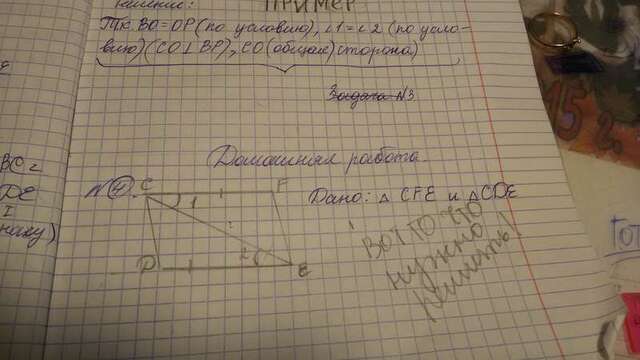 Решение:
ПРИМЕР
Т.к. BO=OP (по условию), ∠1=∠2 (по усло-
вию) (CO⊥BP), CO (общая) сторона)
Задача №3
BC=
DE
I
наку)
Домашняя работа.
№4
C F
1
2
D E
Дано: △CFE и △CDE
ВОТ ТО ЧТО
НУЖНО
решить!
15
2
ГОТ